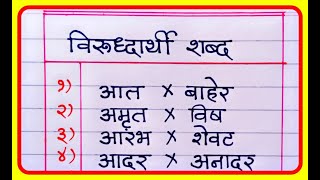 विरूध्दार्थी शब्द
१) आत × बाहेर
२) अमृत × विष
३) आरंभ × शेवट
४) आदर × अनादर